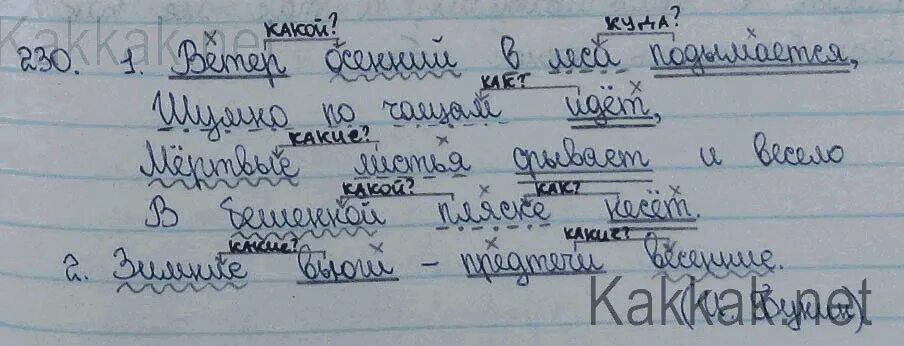 Kakkak.net
КАКОЙ? КУДА?
230. 1. Ветер осенний в леса подымается,
КАК?
Шумно по чащам идёт,
КАКИЕ?
Мёртвые листья срывает и весело
КАКОЙ? КАК?
В бешенной пляске несёт.
КАКИЕ? КАКИЕ?
2. Зимние вьюги – предтечи весенние.
Kakkak.net
(И. Бунин)